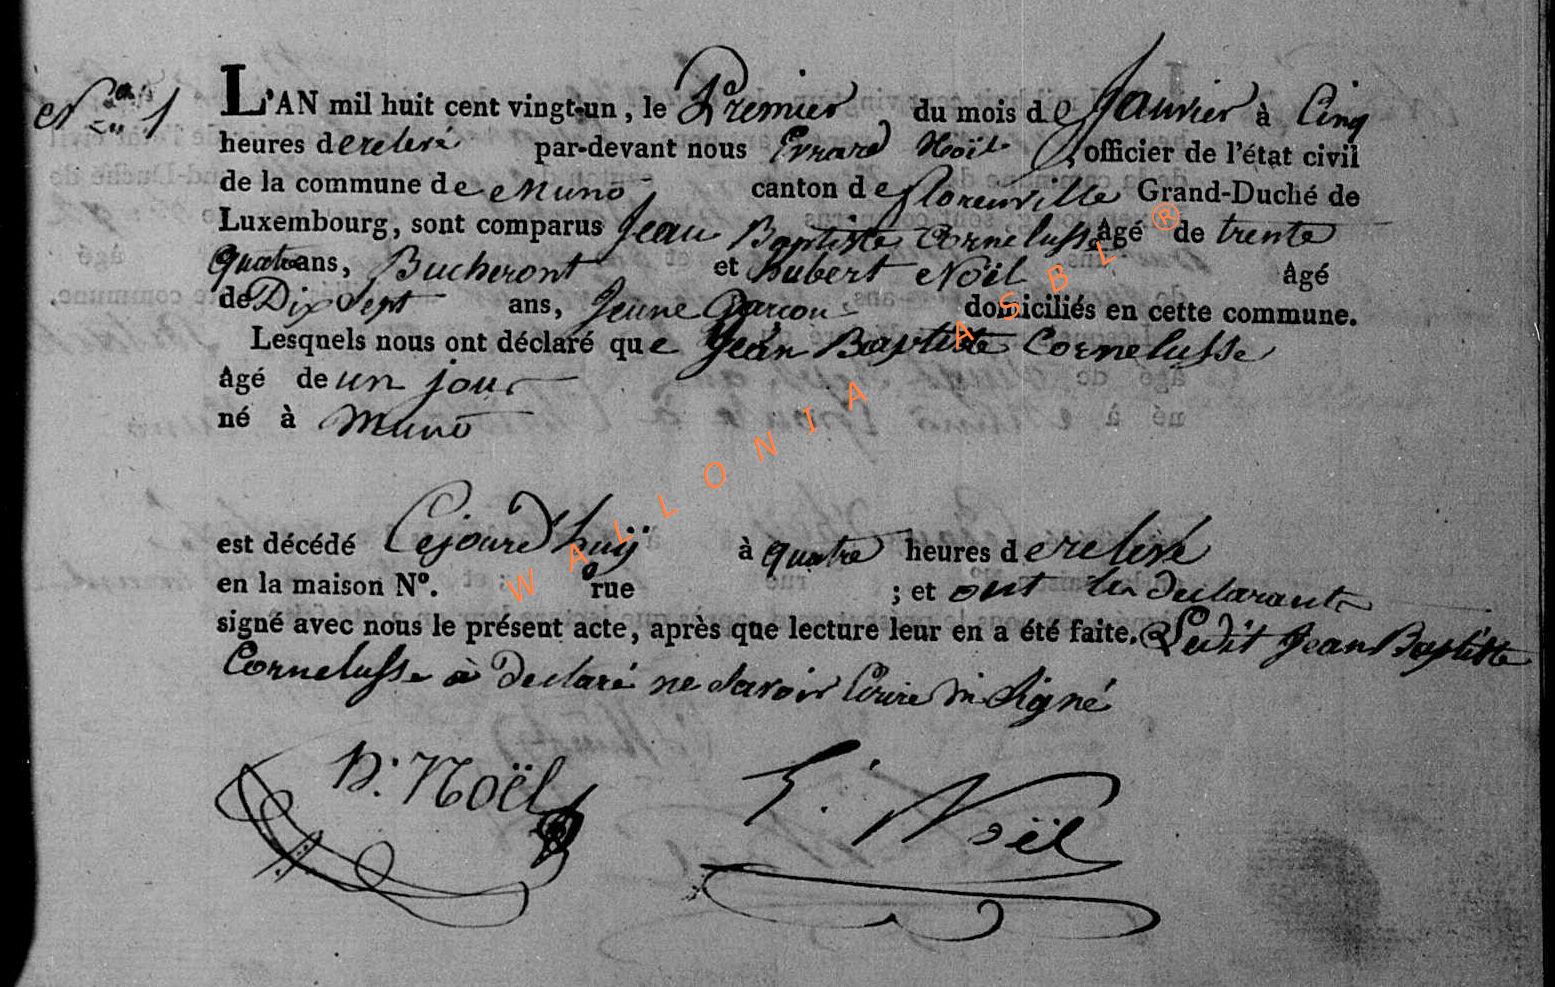 No 1
L'AN mil huit cent vingt-un, le Premier du mois de Janvier à Cinq
heures de relevé par-devant nous Evrard Noël officier de l'état civil
de la commune de Muno canton de florenville Grand-Duché de
Luxembourg, sont comparus Jean Baptiste Cornelusse âgé de trente
quatre ans, Bucheront et hubert Noël âgé
de Dix Sept ans, Jeune Garcon domiciliés en cette commune.
Lesquels nous ont déclaré que Jean Baptiste Cornelusse
âgé de un jour
né à Muno
est décédé Cejourd'huÿ à quatre heures de relevé
en la maison No. rue ; et ont les declarants
signé avec nous le présent acte, après que lecture leur en a été faite. Ledit Jean Baptiste
Cornelusse à declaré ne savoir Ecrire ni signé
h. Noël
E. Noël
WALLONIA ASBL ®